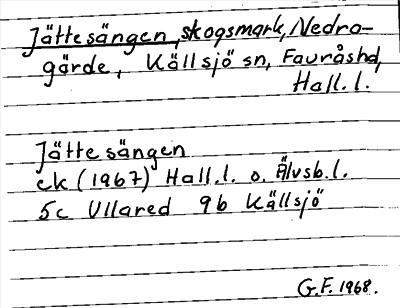 Jättesängen, skogsmark, Nedra-
gärde, Källsjö sn, Fauråshd,
Hall.l.
Jättesängen
ek (1967) Hall.l. o. Älvsb.l.
5c Ullared 9b Källsjö
G.F. 1968.